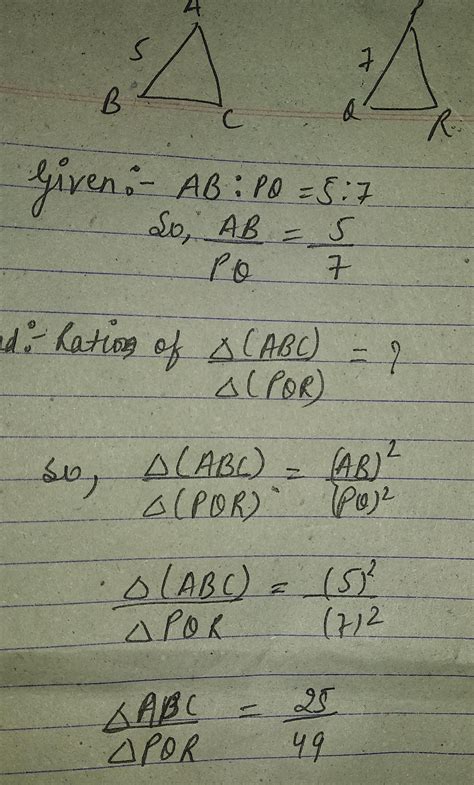 A
5
B
C
7
Q
R
Given:- AB : PQ = 5:7
So, AB/PQ = 5/7
d:- Rations of △(ABC)/△(PQR) = ?
so, △(ABC)/△(PQR) = (AB)²/(PQ)²
△(ABC)/△PQR = (5)²/(7)²
△ABC/△PQR = 25/49